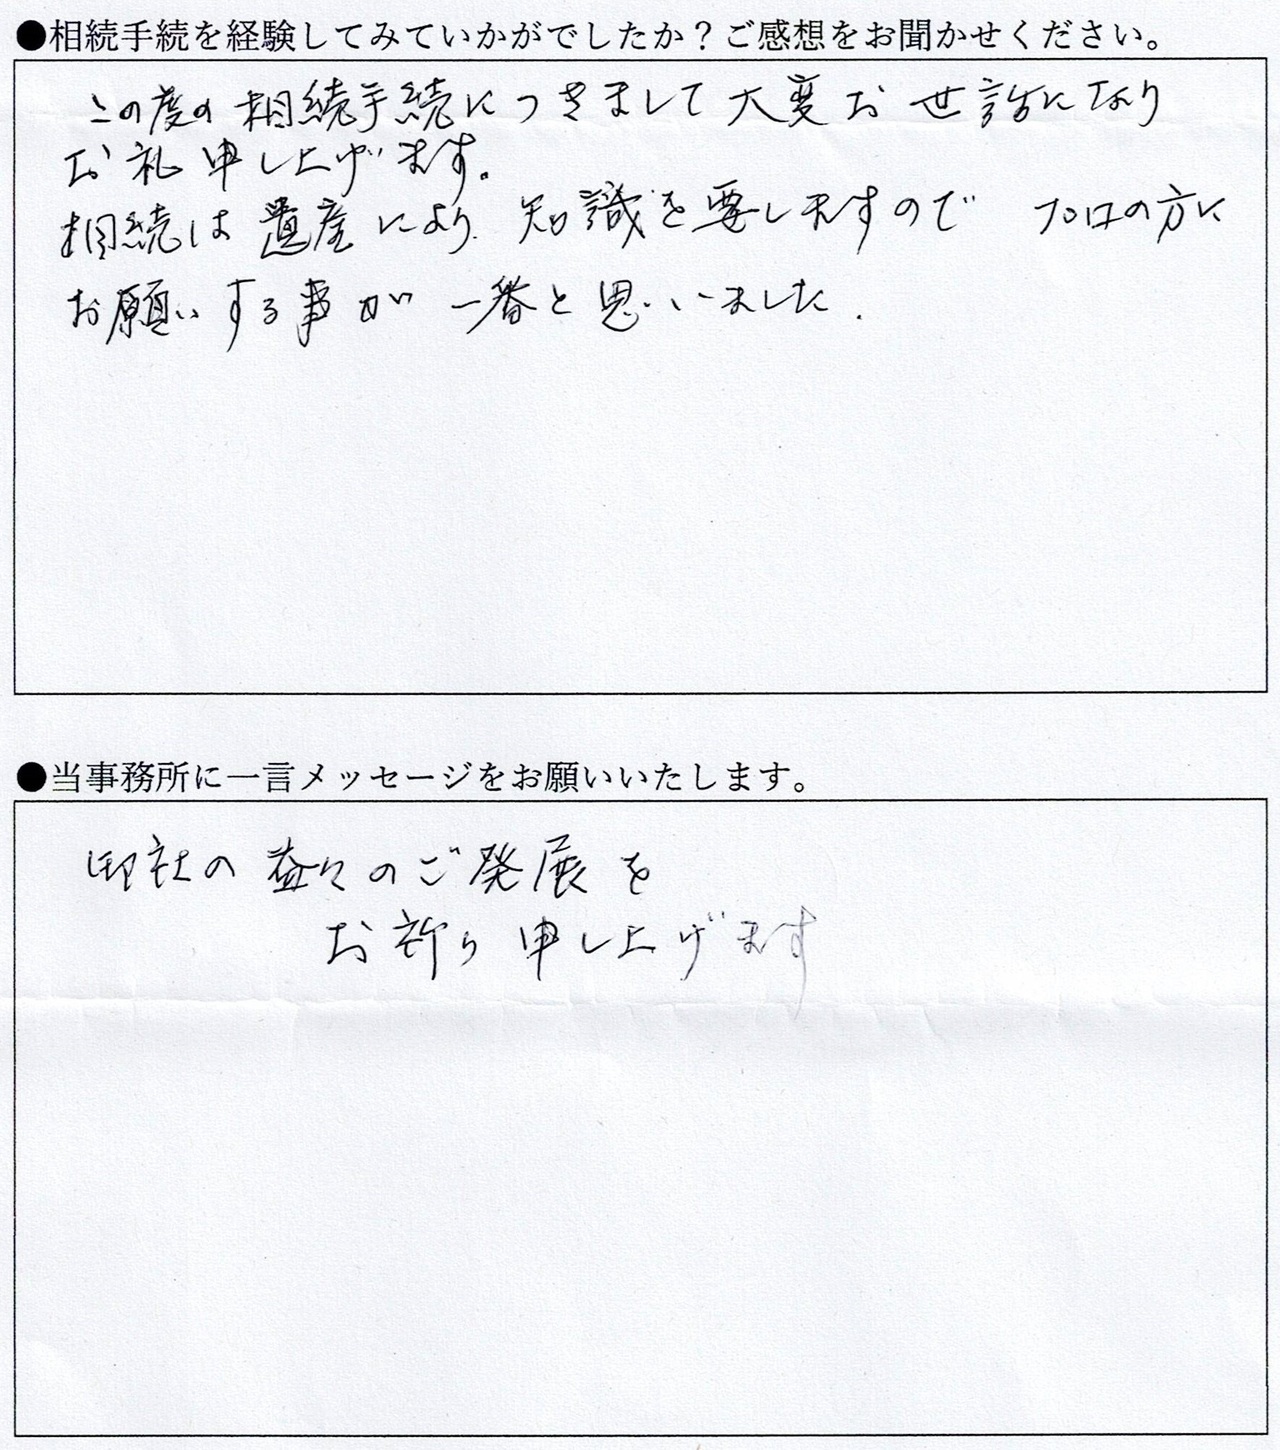 ●相続手続を経験してみていかがでしたか？ご感想をお聞かせください。
この度の相続手続につきまして大変お世話になり
お礼申し上げます。
相続は遺産により知識を要しますので プロの方に
お願いする事が一番と思いました.
●当事務所に一言メッセージをお願いいたします。
御社の益々のご発展を
お祈り申し上げます